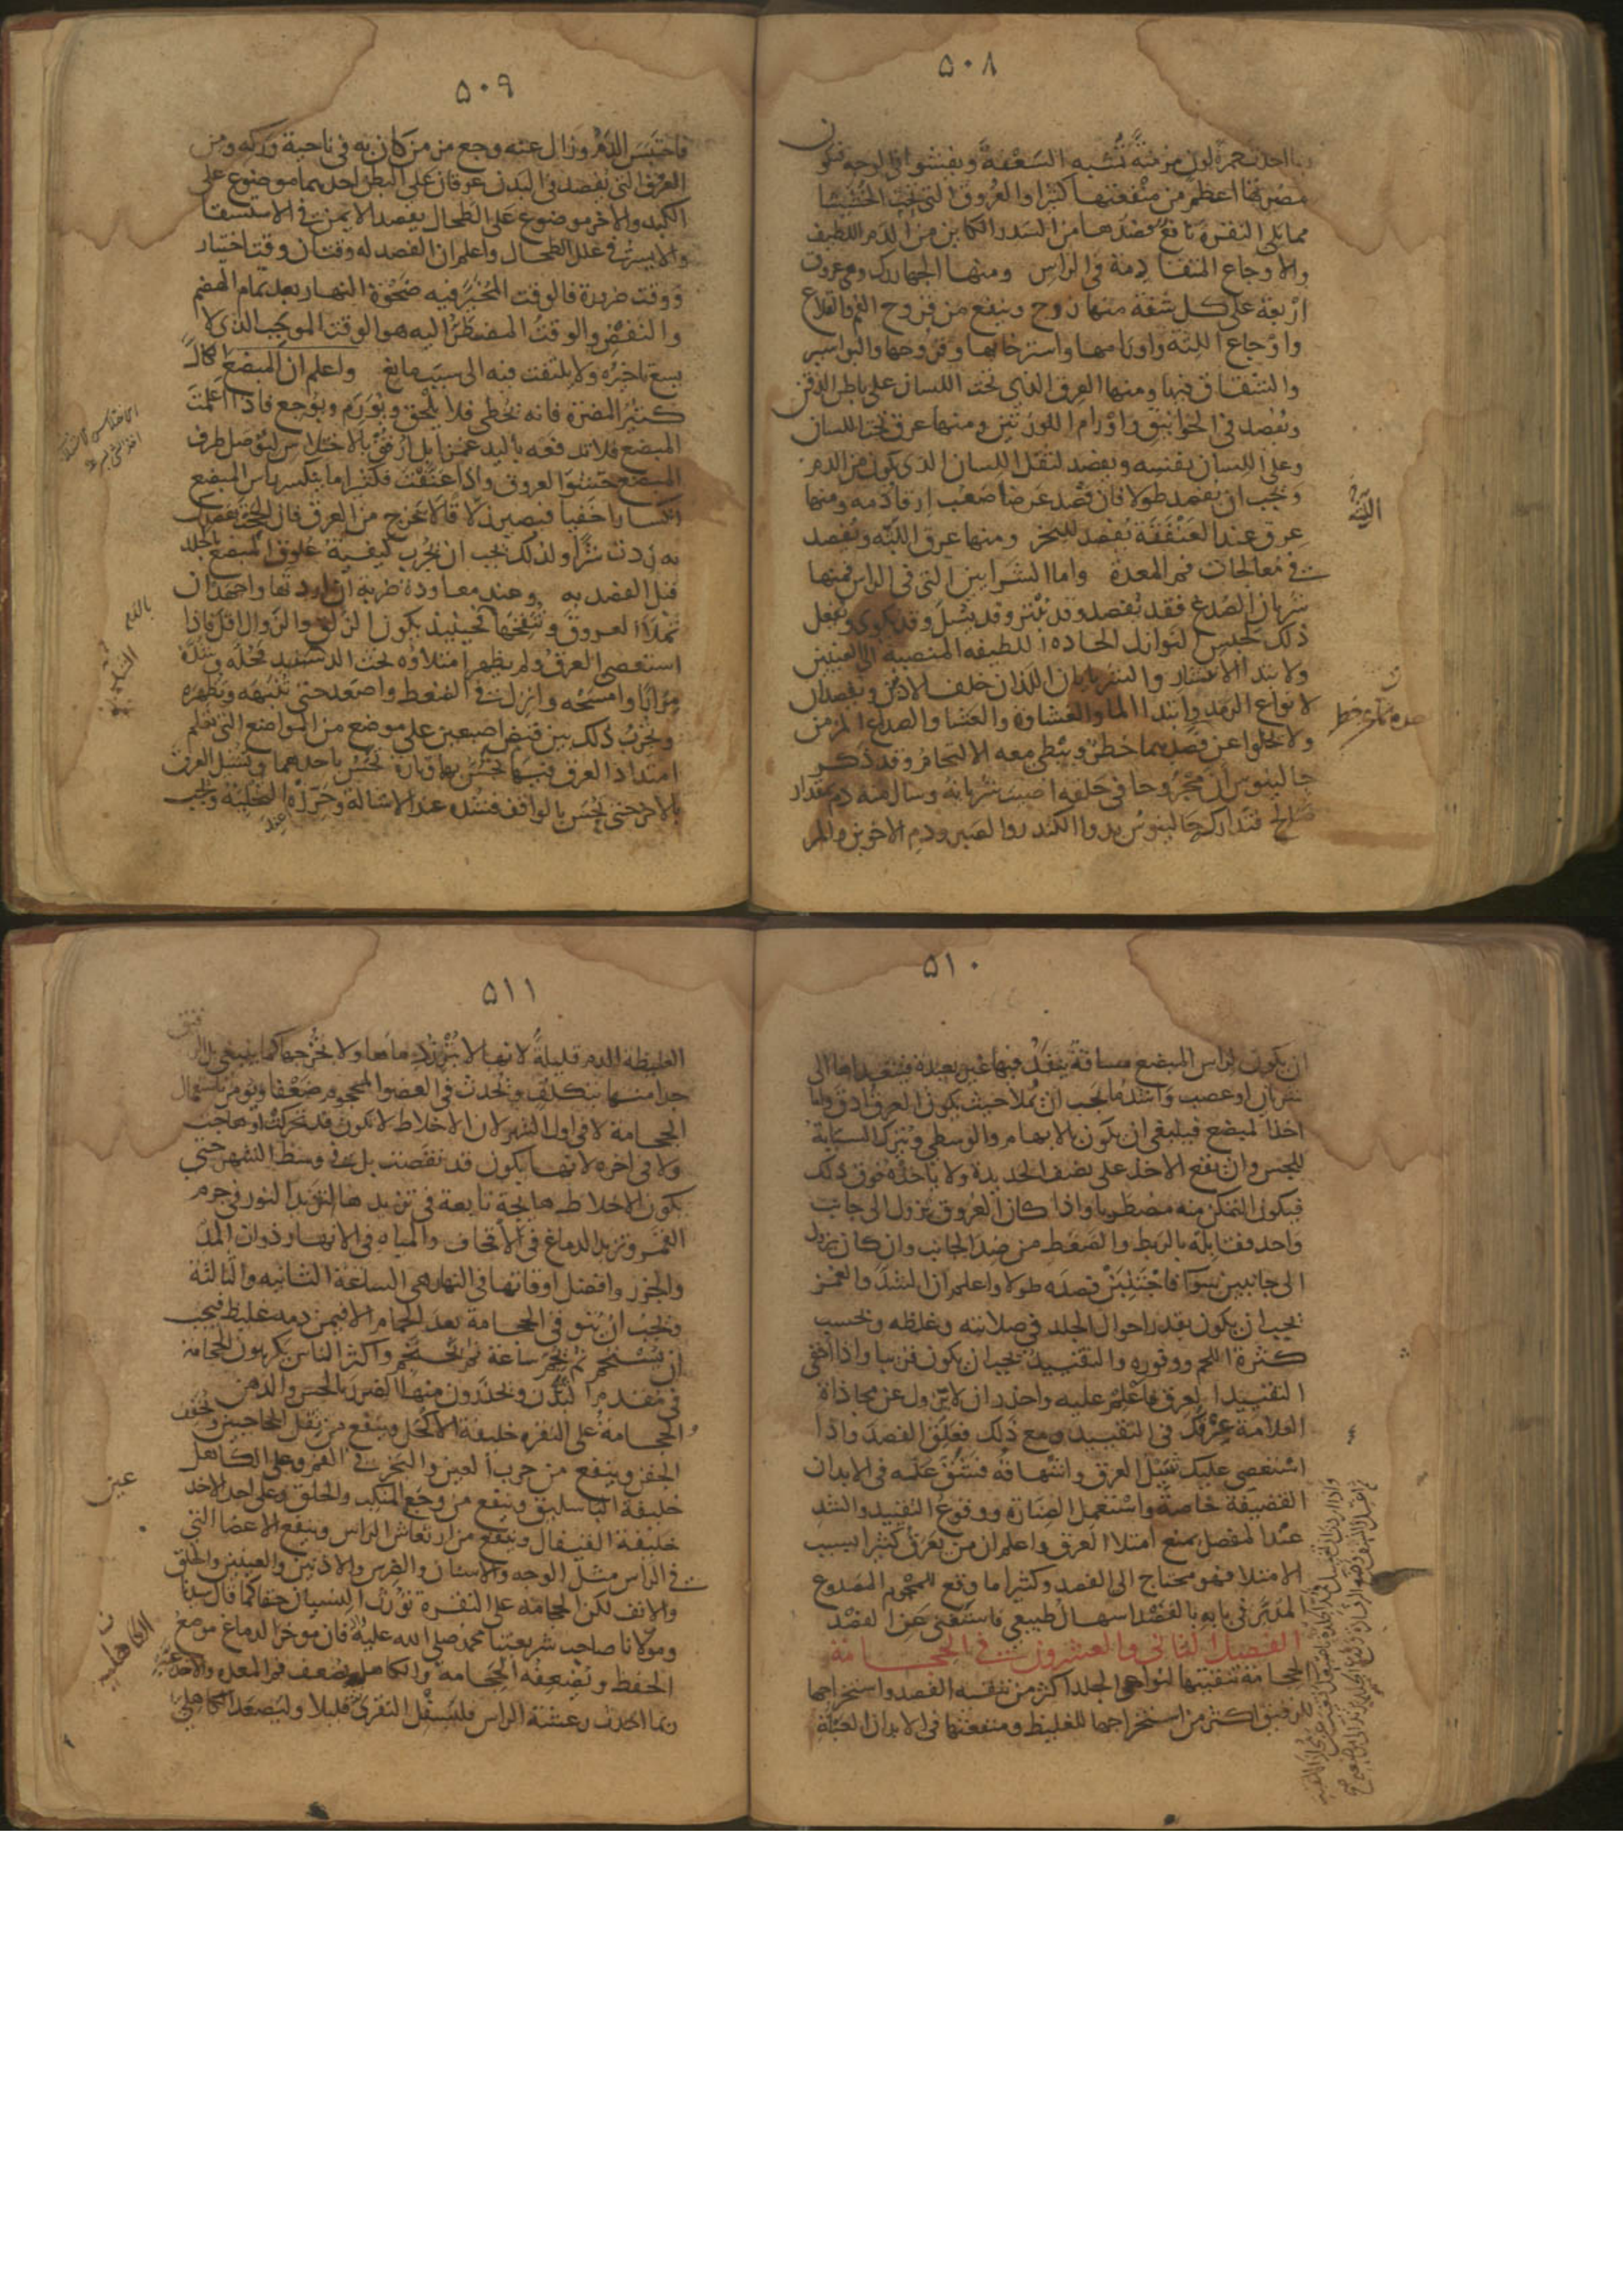 ٥٠٨
ربما احدث حمرة لون مزمنة تشبه السعفة ويفشو في الوجه فتكون
مضرتها اعظم من منفعتها كثيرا والعروق التي تحت الخششا
مما يلي النقرة نافع فصدها من السدر الكاين من الدم اللطيف
والاوجاع المتقادمة في الراس ومنها الجهارك وهي عروق
اربعة على كل شفة منها زوج وينفع من قروح الفم والقلاع
واوجاع اللثة واورامها واسترخايها وقروحها والبواسير
والشقاق فيها ومنها العرق الذي تحت اللسان على باطن الذقن
ويفصد في الخوانيق واورام اللوزتين ومنها عرق تحت اللسان
وعلى اللسان بنفسه ويفصد لثقل اللسان الذي يكون من الدم
ويجب ان يفصد طولا فان فصد عرضا صعب ارقا دمه ومنها
عرق عند العنفقة يفصد للبخر ومنها عرق اللبّه ويفصد
في معالجات فم المعدة واما الشرايين التي في الراس فمنها
شريان الصدغ فقد يفصد وقد يبتر وقد يسل وقد يكوى ويفعل
ذلك لحبس النوازل الحادة اللطيفه المنصبة الى العينين
ولابتداء الانتشار والشريانان اللذان خلف الاذن ويفصدان
لانواع الرمد وابتداء الما والغشاوة والعشا والصداع المزمن
ولا يخلوا عن فصدهما خطر ويبطي معه الالتحام وقد ذكر
جالينوس ان مجروحا في حلقه اصيب شريانه وسال منه دم بمقدار
صالح فتداركه جالينوس بدواء الكندر والصبر ودم الاخوين والمر
اللثة
٥٠٩
فاحتبس الدم وزال عنه وجع مزمن كان به في ناحية وركه ومن
العرق التي تفصد في البدن عرقان على البطن احدهما موضوع على
الكبد والاخر موضوع على الطحال يفصد الايمن في الاستسقا
والايسر في علل الطحال واعلم ان الفصد له وقتان وقت اختيار
ووقت ضرورة فالوقت المخير فيه ضحوة النهار بعد تمام الهضم
والنفض والوقت المضطر اليه هو الوقت الموجب الذي لا
يسع تاخيره ولا يلتفت فيه الى سبب مانع واعلم ان المبضع الكال
كثير المضرة فانه يخطي فلا يلحق ويورم ويوجع فاذا اعملت
المبضع فلا تدفعه باليد غمزا بل ارفق بالاختلاس لتوصل طرف
المبضع حشو العروق واذا عنفت فكثيرا ما ينكسر راس المبضع
انكسارا خفيا فيصير زلاقا لا يخرج من العرق فان الححت بفصدك
به زدت شرا ولذلك يجب ان يجرب كيفية علوق المبضع بالجلد
قبل الفصد به وعند معاودة ضربة ان اردتها واجتهد ان
تملا العروق وتنفخها فحينيذ يكون الزلق والزوال اقل فاذا
استعصى العرق ولم يظهر امتلاوه تحت الشد فحله وشده
مرارا وامسحه وانزل في الضغط واصعد حتى تنبهه وتظهره
وتجرب ذلك بين قبض اصبعين على موضع من المواضع التي تعلم
امتداد العرق فيها تحبس بها وتارة تحبس باحدهما وتسيل العرق
بالاخر حتى تحس بالواقف فتشده عند الاسالة وجزره عند التخلية ويجب
٥١٠
ان يكون لراس المبضع مسافة ينفذ فيها غير بعيدة فيتعداها الى
شريان او عصب واشد ما يجب ان تملا حيث يكون العرق ادق واما
اخذ المبضع فينبغي ان يكون بالابهام والوسطى ويترك السبابة
للمجس وان يقع الاخذ على نصف الحديدة ولا ياخذه فوق ذلك
فيكون التمكن منه مضطربا واذا كان العروق تزول الى جانب
واحد فقابله بالربط والضغط من ضد الجانب وان كان يزول
الى جانبين سوا فاجتنب فصده طولا واعلم ان الشد والغمز
يجب ان يكون بقدر احوال الجلد في صلابته وغلظه وبحسب
كثرة اللحم ووفوره والتقييد يجب ان يكون قريبا واذا اخفى
التقييد العرق فاعلم عليه واحذر ان لا يزول عن محاذاة
العلامة عرقك في التقييد ومع ذلك فعلق الفصد واذا
استعصى عليك شيل العرق وانتهاقه فشق عليه في الابدان
القضيفة خاصة واستعمل الصنارة ووقوع التقييد والشد
عند المفصل يمنع امتلا العرق واعلم ان من يعرق كثيرا بسبب
الامتلا فهو محتاج الى الفصد وكثيرا ما وقع للمحموم المصدوع
المدبر في بابه بالفصد اسهال طبيعي فاستغنى عن الفصد
الفصل الثاني والعشرون في الحجامة
الحجامة تنقيتها لنواحي الجلد اكثر من تنقية الفصد واستخراجها
للرقيق اكثر من استخراجها للغليظ ومنفعتها في الابدان العبلة
٥١١
الغليظة الدم قليلة لانها لا تبرز دماها ولا تخرجها كما ينبغي بل الرقيق
جدا منها بتكلف وتحدث في العضو المحجوم ضعفا ويومر باستعمال
الحجامة لا في اول الشهر لان الاخلاط لا تكون قد تحركت او هاجت
ولا في اخره لانها يكون قد نقصت بل في وسط الشهر حتى
يكون الاخلاط هايجة تابعة في تزيدها لتزيد النور في جرم
القمر وتزيد الدماغ في الاقحاف والمياه في الانهار ذوات المد
والجزر وافضل اوقاتها في النهار هي الساعة الثانيه والثالثة
ويجب ان يتوقى الحجامة بعد الحمام الا فيمن دمه غليظ فيجب
ان يستحم ثم يجم ساعة ثم يحتجم واكثر الناس يكرهون الحجامة
في مقدم البدن ويحذرون منها الضرر بالحس والذهن
الحجامة على النقرة خليفة الاكحل وينفع من ثقل الحاجبين ويخفف
الجفن وينفع من جرب العين والبخر في الفم وعلى الكاهل
خليفة الباسليق وينفع من وجع المنكب والحلق وعلى احد الاخدعين
خليفة القيفال وينفع من ارتعاش الراس وينفع الاعضا التي
في الراس مثل الوجه والاسنان والضرس والاذنين والعينين والحلق
والانف لكن الحجامة على النقرة تورث النسيان حقا كما قال سيدنا
ومولانا صاحب شريعتنا محمد صلى الله عليه فان موخر الدماغ موضع
الحفظ وتضعفه الحجامة والكاهل يضعف فم المعدة والاخدعية
ربما احدثت رعشة الراس فليسفل النقرى قليلا وليصعد الكاهلية
الكاهلية